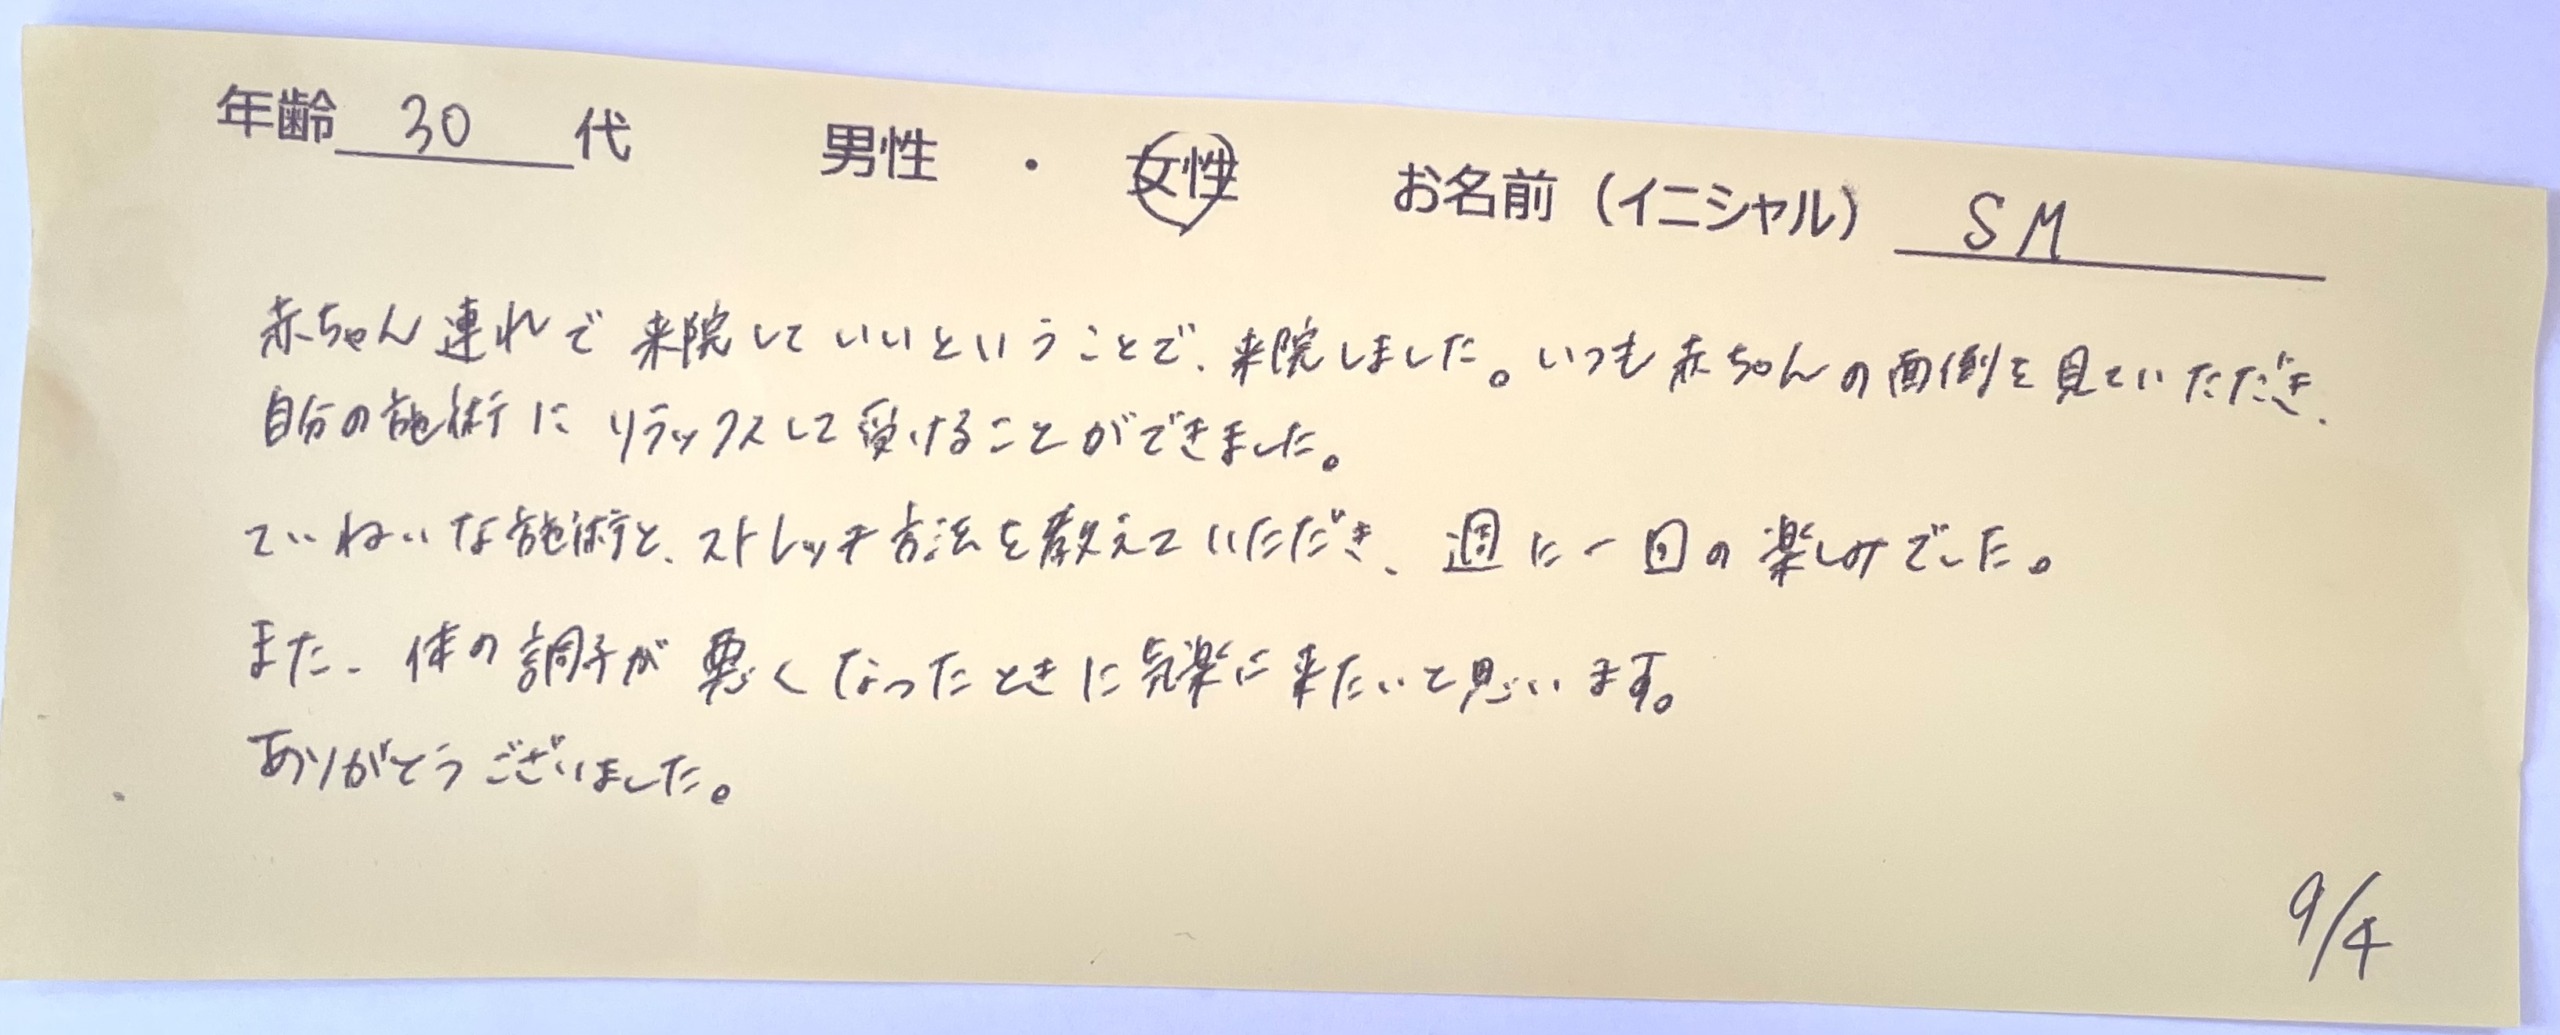 年齢 30 代 男性 ・ 女性 お名前（イニシャル） SM
赤ちゃん連れで来院していいということで、来院しました。いつも赤ちゃんの面倒を見ていただき、
自分の施術にリラックスして受けることができました。
ていねいな施術と、ストレッチ方法を教えていただき、週に一回の楽しみでした。
また、体の調子が悪くなったときに気楽に来たいと思います。
ありがとうございました。
9/4